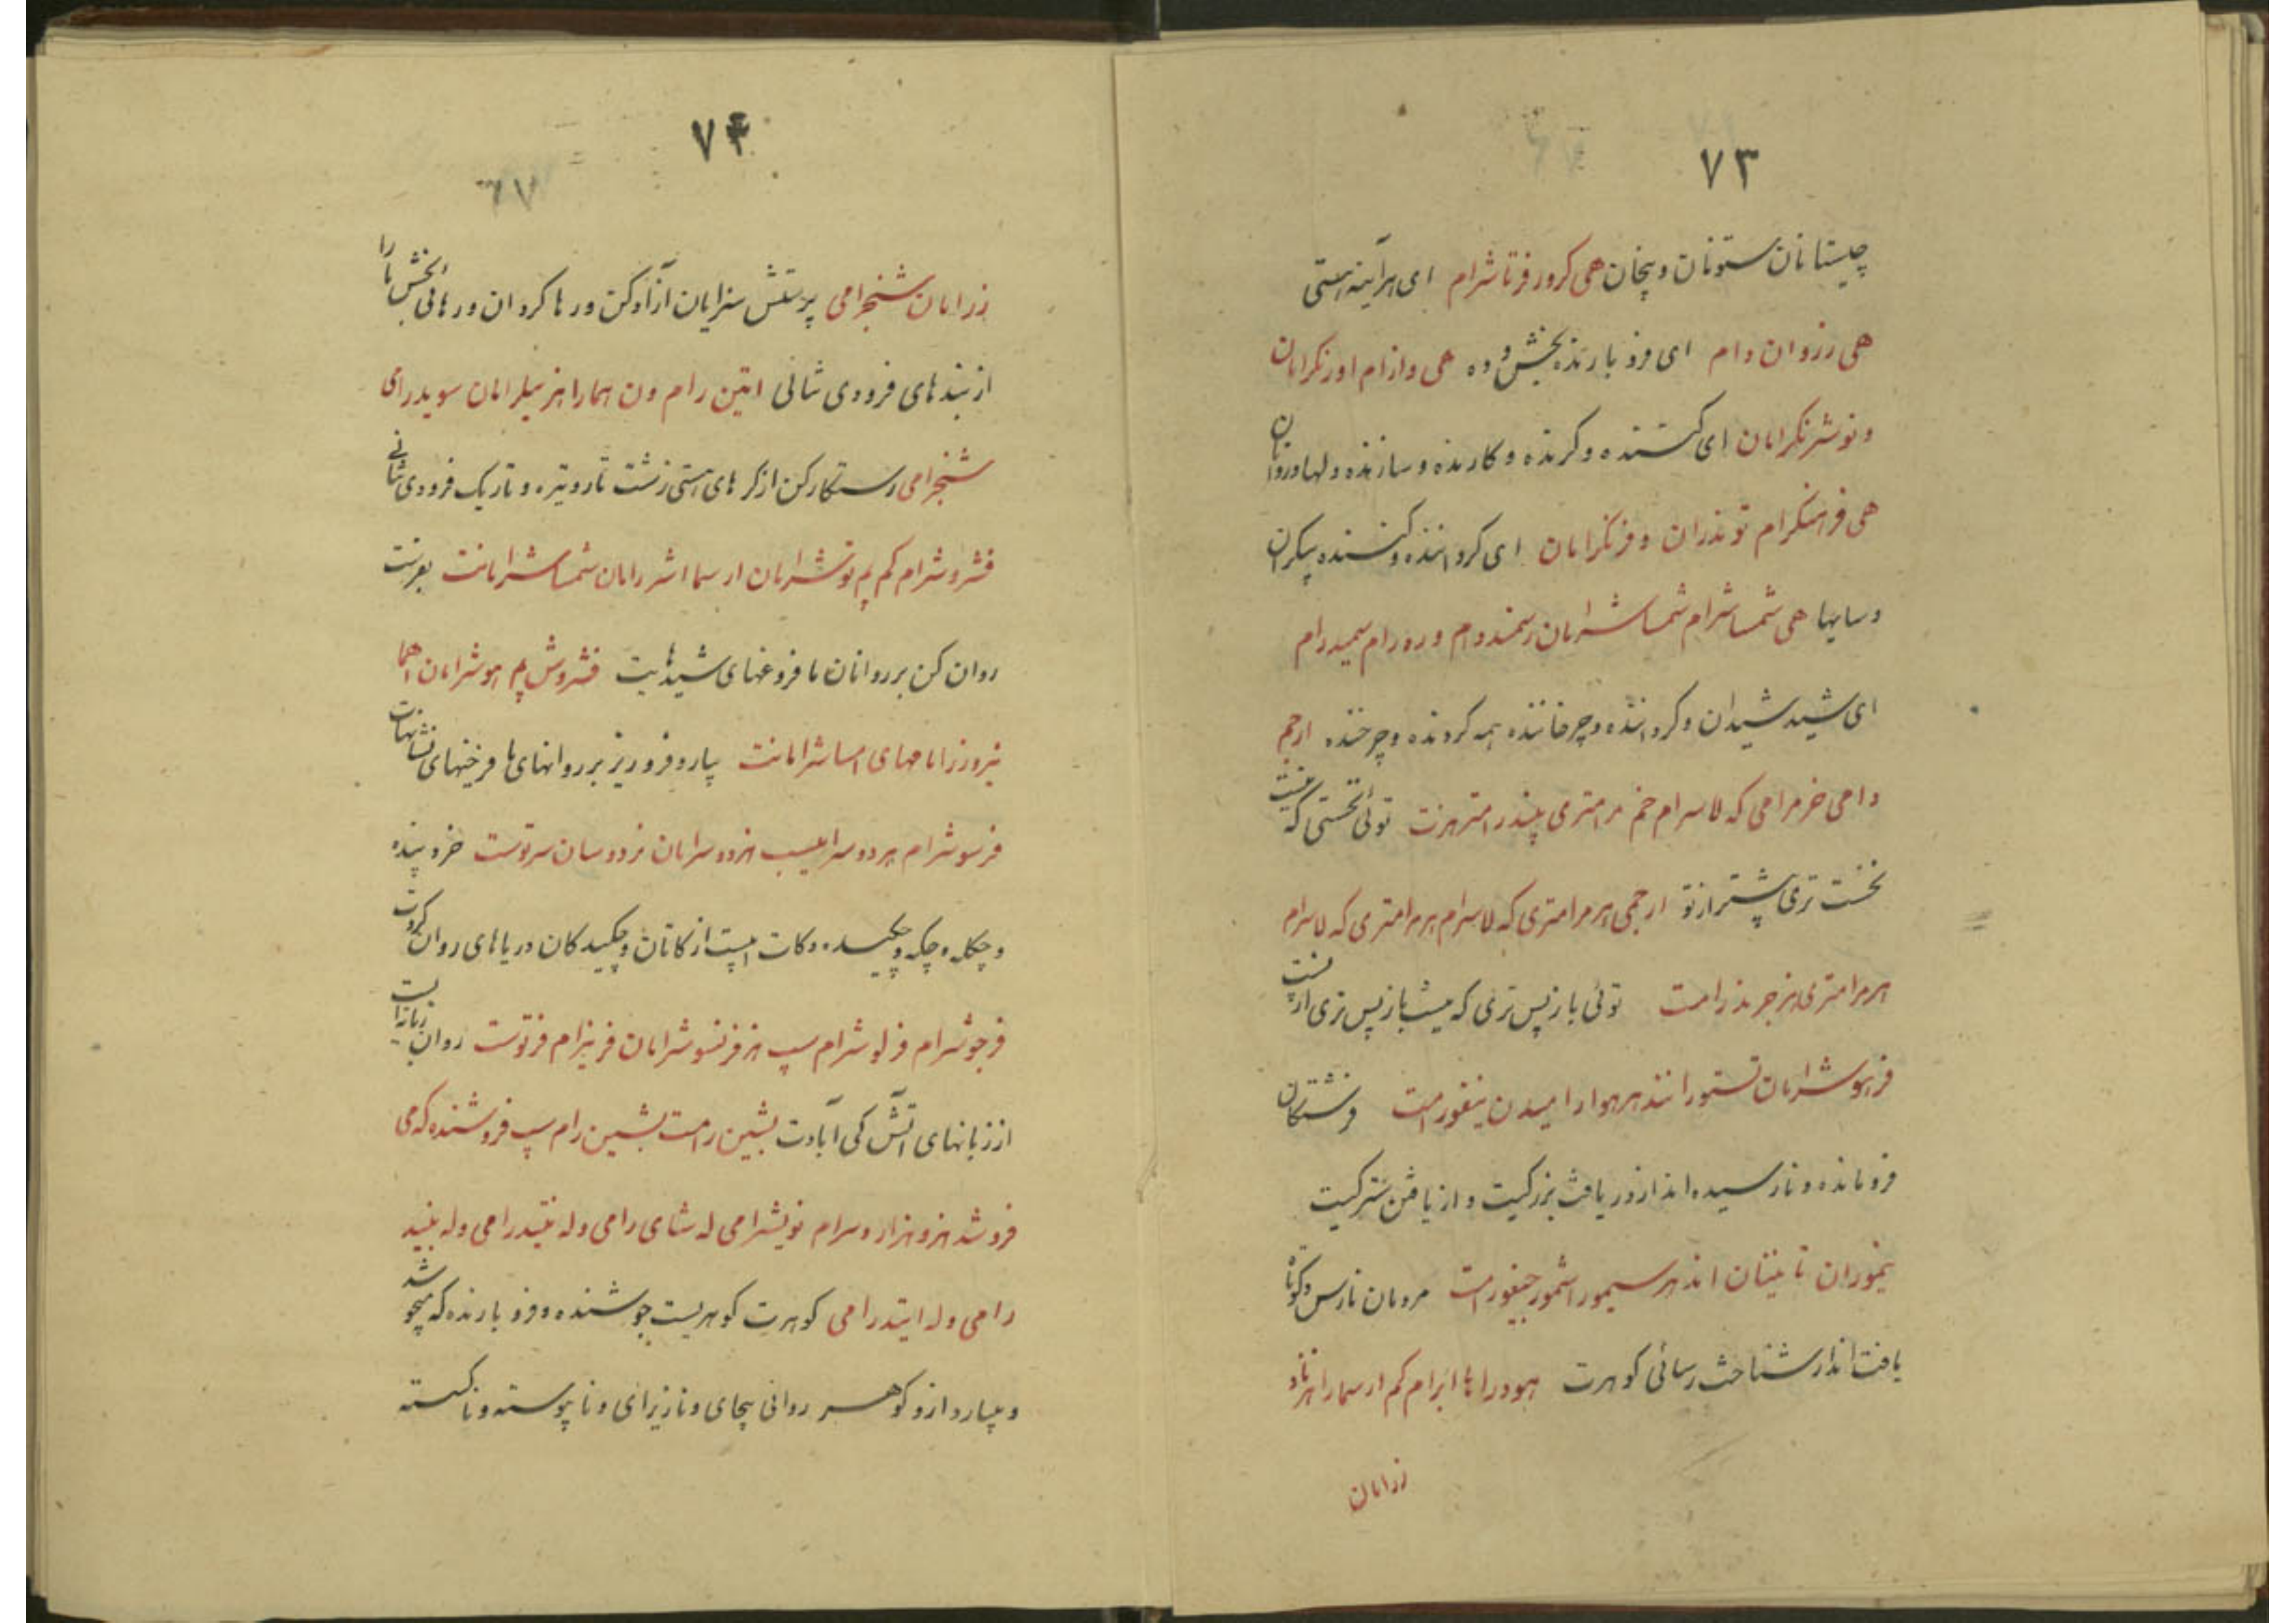 ۷۳
چیستانان ستونان و پنجان هی کرور فرتاشرام ای هرآینه هستی
هی رزوان دام ای فرو بارنده بخش و ده هی وازام اورنکرامان
و نوشرنکرامان ای کننده و کرنده و کارنده و سازنده دلها و روانان
هی فرهنکرام توندران و فرنکرامان ای کرداننده و کننده پیکران
و سایها هی شمساشرام شمساشرامان رسمندوام و ره رام سمیدرام
ای شید شیدان و کرداننده و چرخاننده همه کردنده و چرخنده ارجم
دامی خرمرامی که لاسرام خم مرامتری پیندرامتر هزنت توئی نخستی که نیست
نخست تری پیشتر از تو ارجمی هرمرامتری که لاسرام هرمرامتری که لاسرام
هرمرامتری هزجرمدرامت توئی بازپس تری که نیست بازپس تری از پست
فرهوشرامان تستورانند هرهوارامیدن ینفورامت فرشتکان
فرومانده و نارسیده اند از دریافت بزرکیت و از یافتن سترکیت
نیموران تابینتان اند هر سیمور اشمور جیفورامت مردمان نارس و کوتاه
یافت اند از شناخت رسائی کوهرت هوددراها ابرام کم ارسمارا هزناد
زدامان
۷۴
زدامان شنجرامی پرستش سزایان آزاد کن و رها کردان و رهائی بخش ما را
از بندهای فرودی شانی اتین رام ون هاماراهز سیلرامان سویدرامی
شنجرامی رستکار کن از کرهای هستی زشت تار و تیره و تاریک فرودی شانی
فشروشرام کم پم نوشرامان ارسما اشررامان شمساشرامانت بفرست
روان کن بر روانان ما فروغهای شیدهایت فشروش پم هوشرامان اهما
نیروزرامامهای امساشرامانت پار و فرو ریز بر روانهای ما فرخیهای نشانهایت
فرسوشرام هردوسراعیسب هزدوسرامان فردوسان سرتوست خرد بنده
و چکله و چکه و چکیده و کات است از کاتان و چکیدکان دریاهای روان کردت
فرجوشرام فرلوشرام سیب هزفرنسوشرامان فرنیزام فرتوست روان زبانه است
از زبانهای آتش کی آبادت بشین رامت بشین رام سیب فروشنده که می
فروشد هزو هزار دسرام نویشرامی له شای رامی وله بنتیدرامی وله بنید
رامی وله ایتدرامی کوهرت کوهریست جوشنده و فرو بارنده که میجوشد
و میبارد از و کوهر روانی بیجای و نازیرای و نا پیوسته و ناکسسته